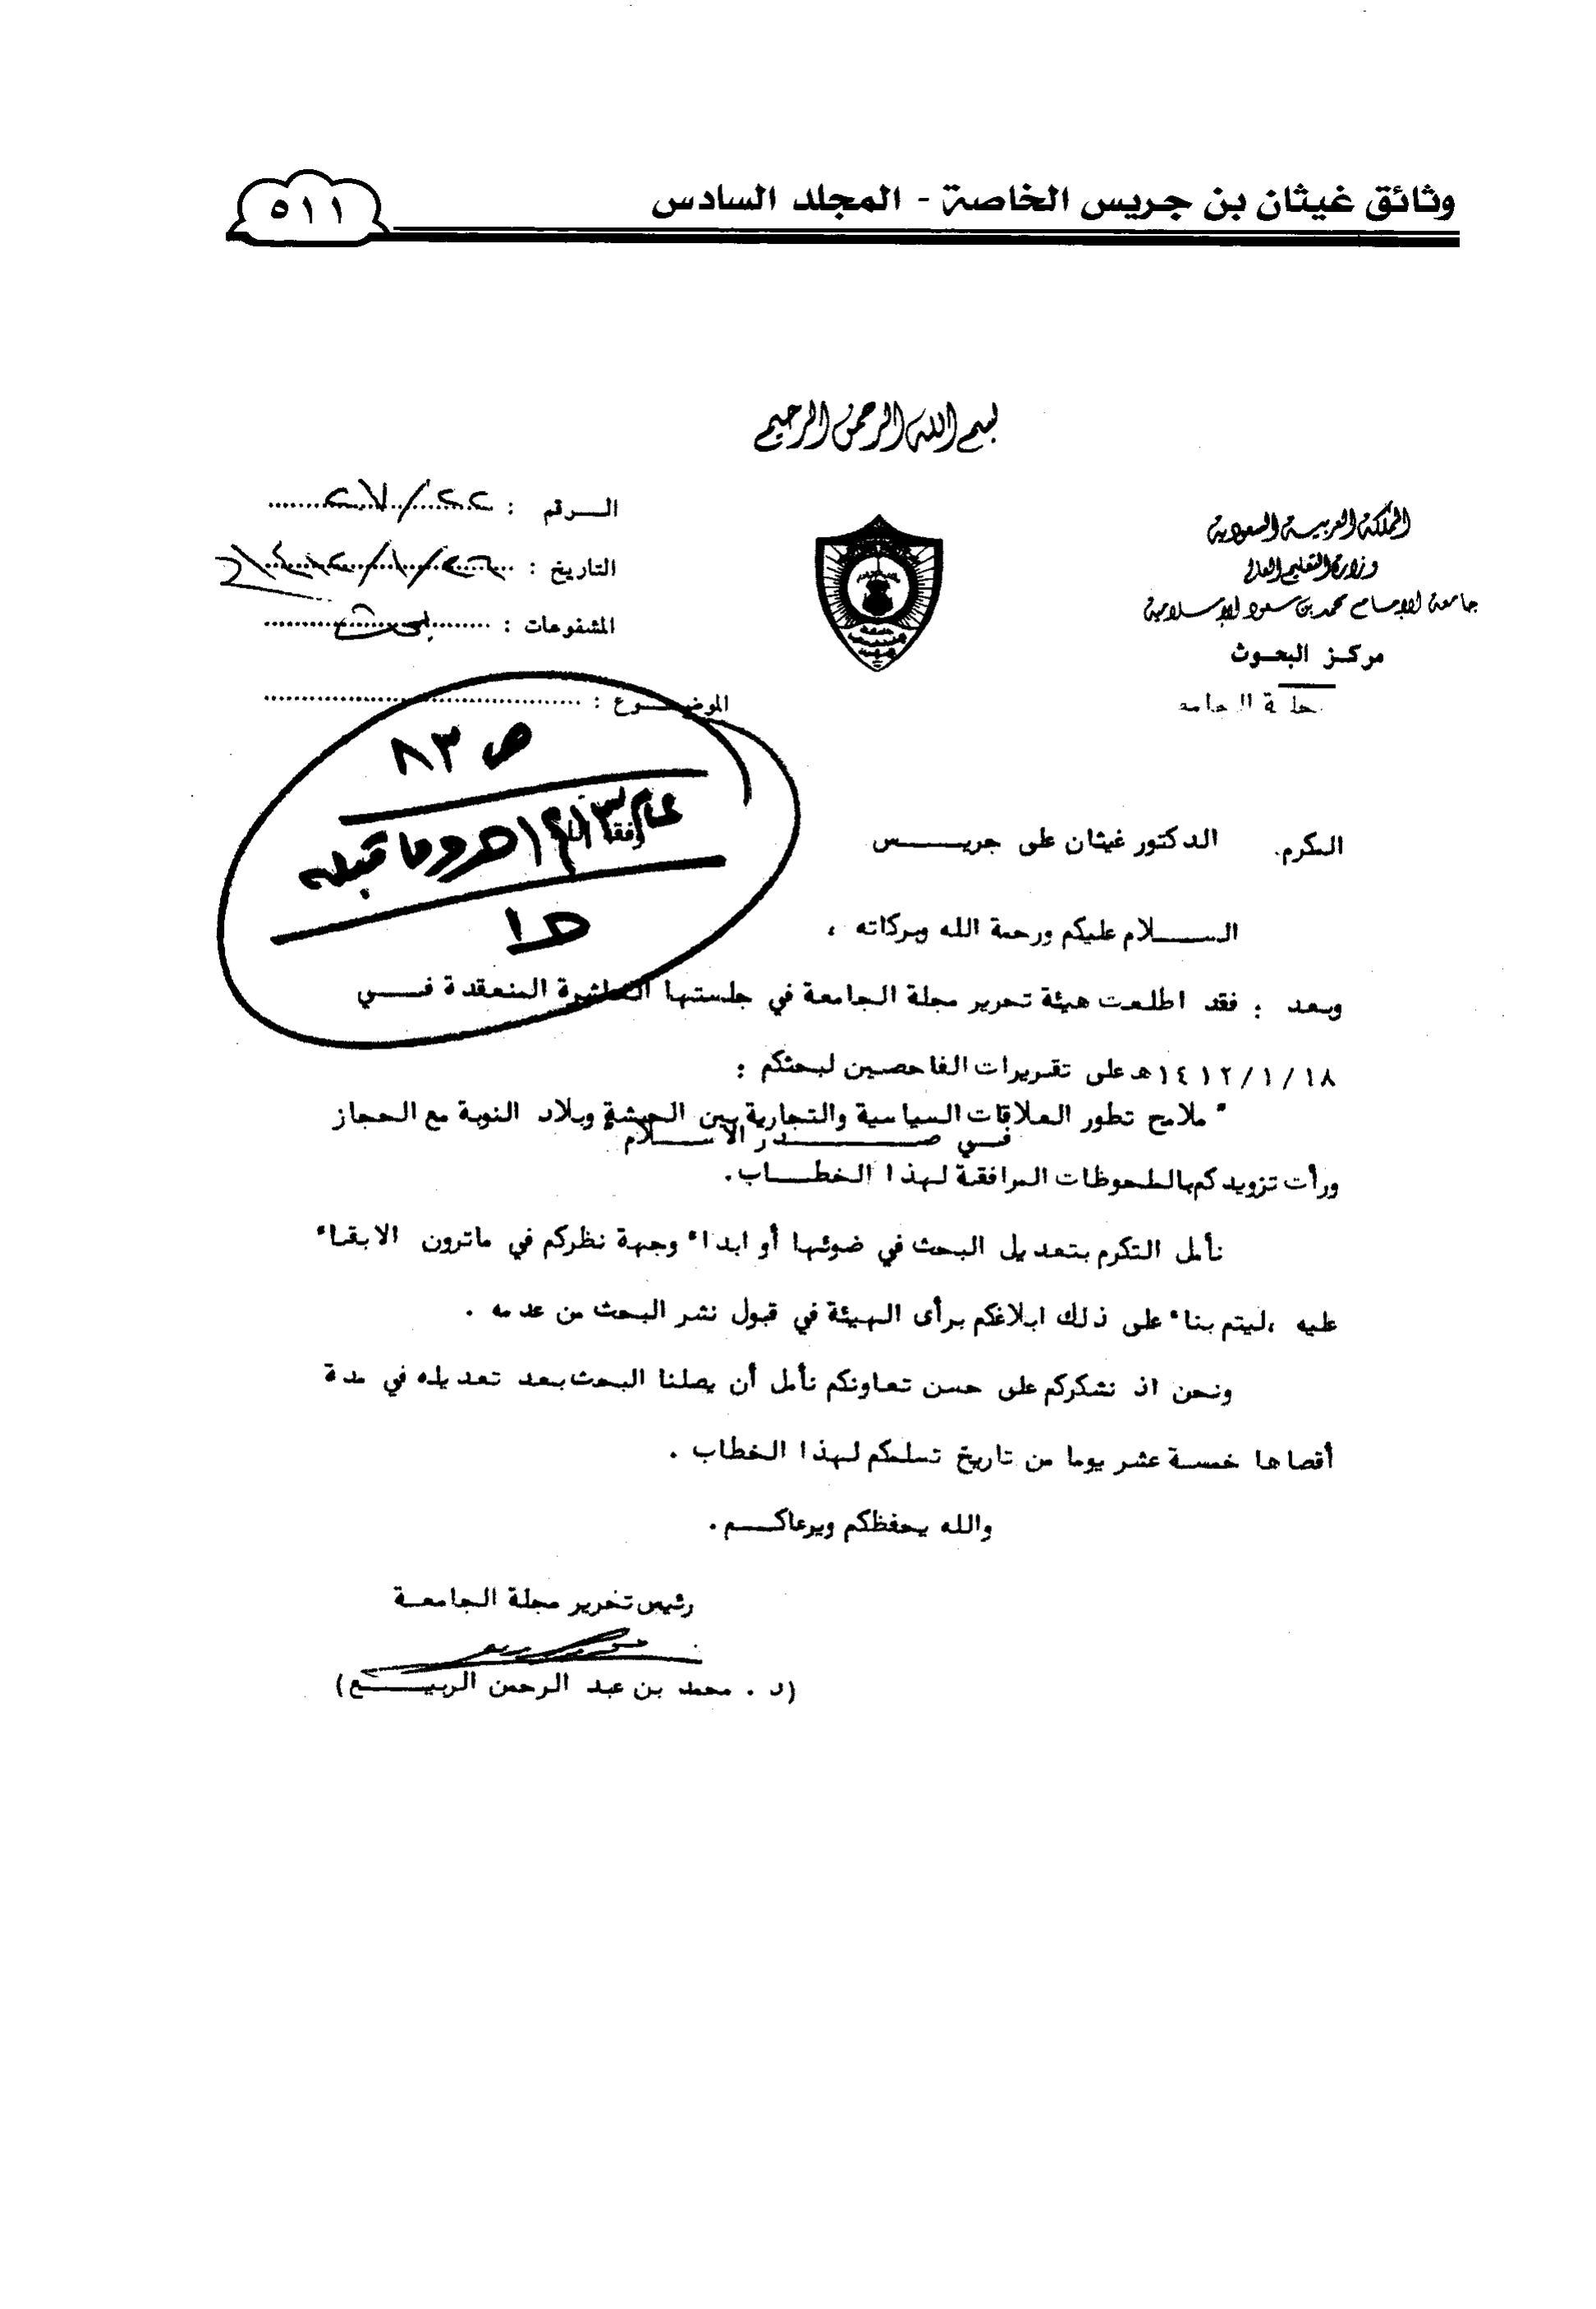 وثائق غيثان بن جريس الخاصة - المجلد السادس
٥١١
بسم الله الرحمن الرحيم
المملكة العربية السعودية
وزارة التعليم العالي
جامعة الإمام محمد بن سعود الإسلامية
مركز البحوث
الرقم :
التاريخ :
المشفوعات :
الموضوع :
ص ٨٣
عام ١٤١٣هـ وما قبله
المكرم. الدكتور غيثان على جريس
وفقه الله
السلام عليكم ورحمة الله وبركاته ،
وبعد : فقد اطلعت هيئة تحرير مجلة الجامعة في جلستها العاشرة المنعقدة في
١٤١٢/١/١٨هـ على تقريرات الفاحصين لبحثكم :
" ملامح تطور العلاقات السياسية والتجارية بين الحبشة وبلاد النوبة مع الحجاز
في صدر الاسلام
ورأت تزويدكم بالملحوظات المرافقة لهذا الخطاب.
نأمل التكرم بتعديل البحث في ضوئها أو ابداء وجهة نظركم في ماترون الابقاء
عليه ،ليتم بناء على ذلك ابلاغكم برأى الهيئة في قبول نشر البحث من عدمه .
ونحن اذ نشكركم على حسن تعاونكم نأمل أن يصلنا البحث بعد تعديله في مدة
أقصاها خمسة عشر يوما من تاريخ تسلمكم لهذا الخطاب .
والله يحفظكم ويرعاكم .
رئيس تحرير مجلة الجامعة
(د . محمد بن عبد الرحمن الربيع)